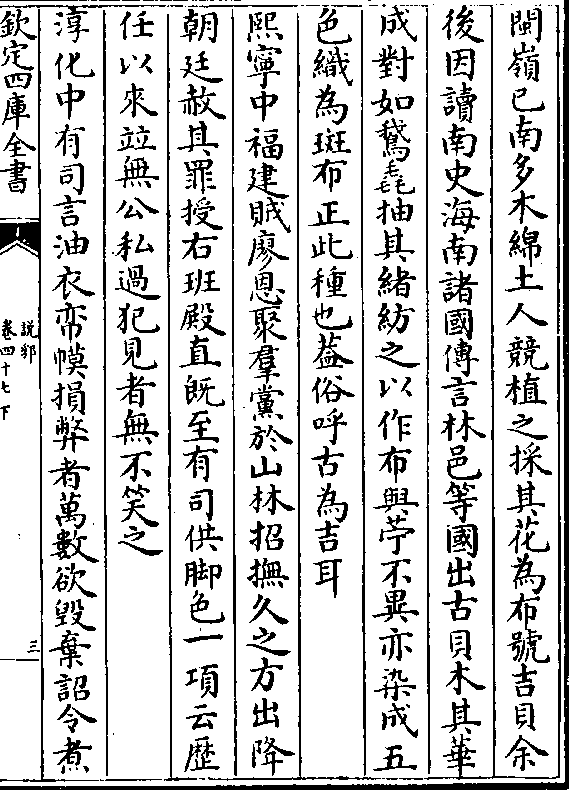 閩嶺已南多木綿土人競植之採其花為布號吉貝余
後因讀南史海南諸國傳言林邑等國出古貝木其華
成對如鵞毳抽其緒紡之以作布與苧不異亦染成五
色織為斑布正此種也葢俗呼古為吉耳
熙寧中福建賊廖恩聚羣黨於山林招撫久之方出降
朝廷赦其罪授右班殿直既至有司供脚色一項云歴
任以來竝無公私過犯見者無不笑之
淳化中有司言油衣帟幙損弊者萬數欲毀棄詔令煮
欽定四庫全書
說郛
卷四十七下
三